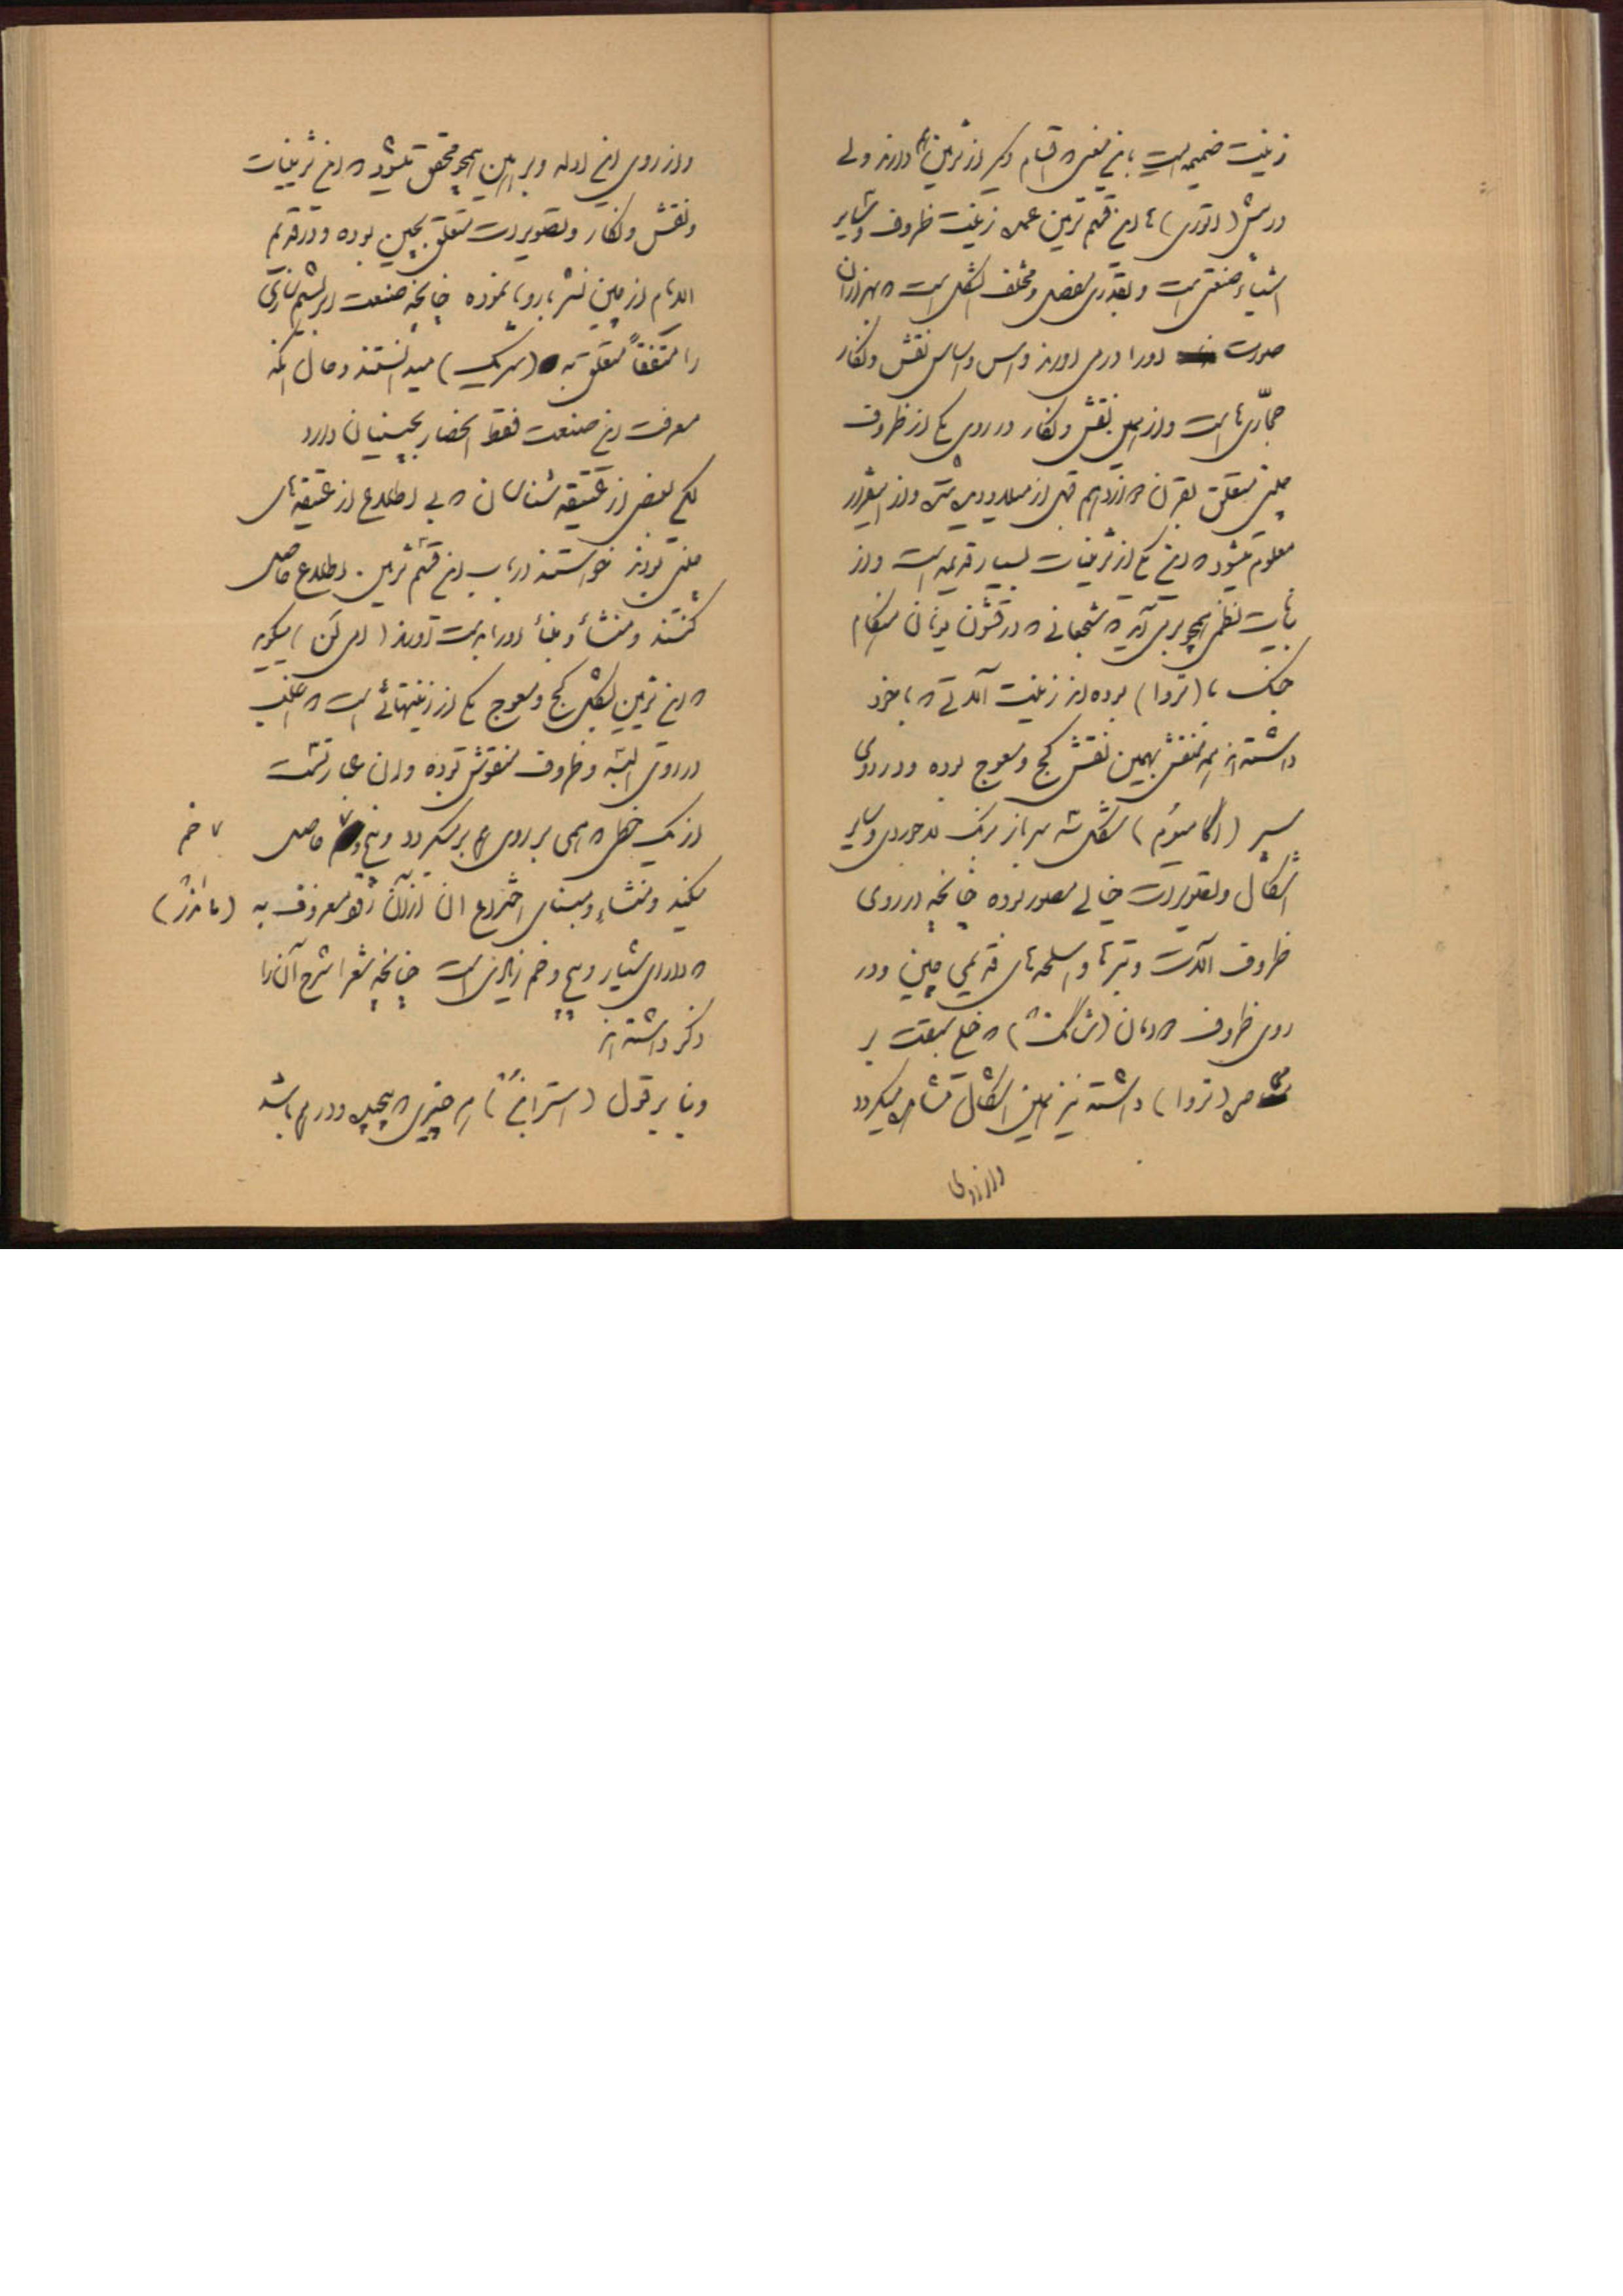 زینت ضمیمه است باین معنی که اقسام دیگر از تزئین هم دارند ولی
در پیش (اتوری) ها این قسم تزئین عملاً زینت ظروف و سایر
اشیاء صنعتی است و بقدری مفصل و مختلف الشکل است که بهزاران
صورت او را در می آورند و اس و اساس نقش و نگار
حجاری ها است و از همین نقش و نگار در روی یکی از ظروف
چینی متعلق بقرن دوازدهم قبل از میلاد دیده شده و از اینقرار
معلوم میشود که این یکی از تزئینات بسیار قدیمه است و از
بیانات نظمی همچو بر می آید که شجعانی که در قشون یونان هنگام
جنگ با (تروا) بوده اند زینت آلاتی که با خود
داشته اند همه منقش بهمین نقش کج و معوج بوده و در روی
سپر (اگاممنوم) بشکل سه سر باز برنگ لاجوردی و سایر
اشکال و تصویرات خیالی مصور بوده چنانچه در روی
ظروف آلات و تبرها و اسلحه های قدیمی چین و در
روی ظروف که دمان (شانگ) که خیلی سبقت بر
(تروا) داشته نیز همین اشکال مشاهده میگردد
و از روی
و از روی این ادله و براهین همچو محقق میشود که این تزئینات
و نقش و نگار و تصویرات متعلق بچین بوده و در قدیم
الایام از چین نشر باروپا نموده چنانچه صنعت ابریشم سازی
را متفقاً متعلق به (سریک) میدانستند و حال آنکه
معرفت این صنعت فقط انحصار بچینیان دارد
لکن بعضی از عتیقه شناسان که بی اطلاع از عتیقه های
چینی بودند خواستند در باب این قسم تزئین اطلاع حاصل
کنند و منشأ و مبنأ او را بدست آورند میگوید
که این تزئین بشکل کج و معوج یکی از زینتهائی است که اغلب
در روی البسه و ظروف منقوش بوده و آن عبارتست
از یک خطی که همی بر روی هم برمیگردد و پیچ و خم حاصل
میکند و منشاء و مبنای اختراع آن از آن رود معروف به (ماندر)
که دارای بسیار پیچ و خم زیادی است چنانچه شعرا شرح آن را
ذکر داشته اند
و بنا بر قول (استرابن) هر چیزی که پیچیده و در هم باشد